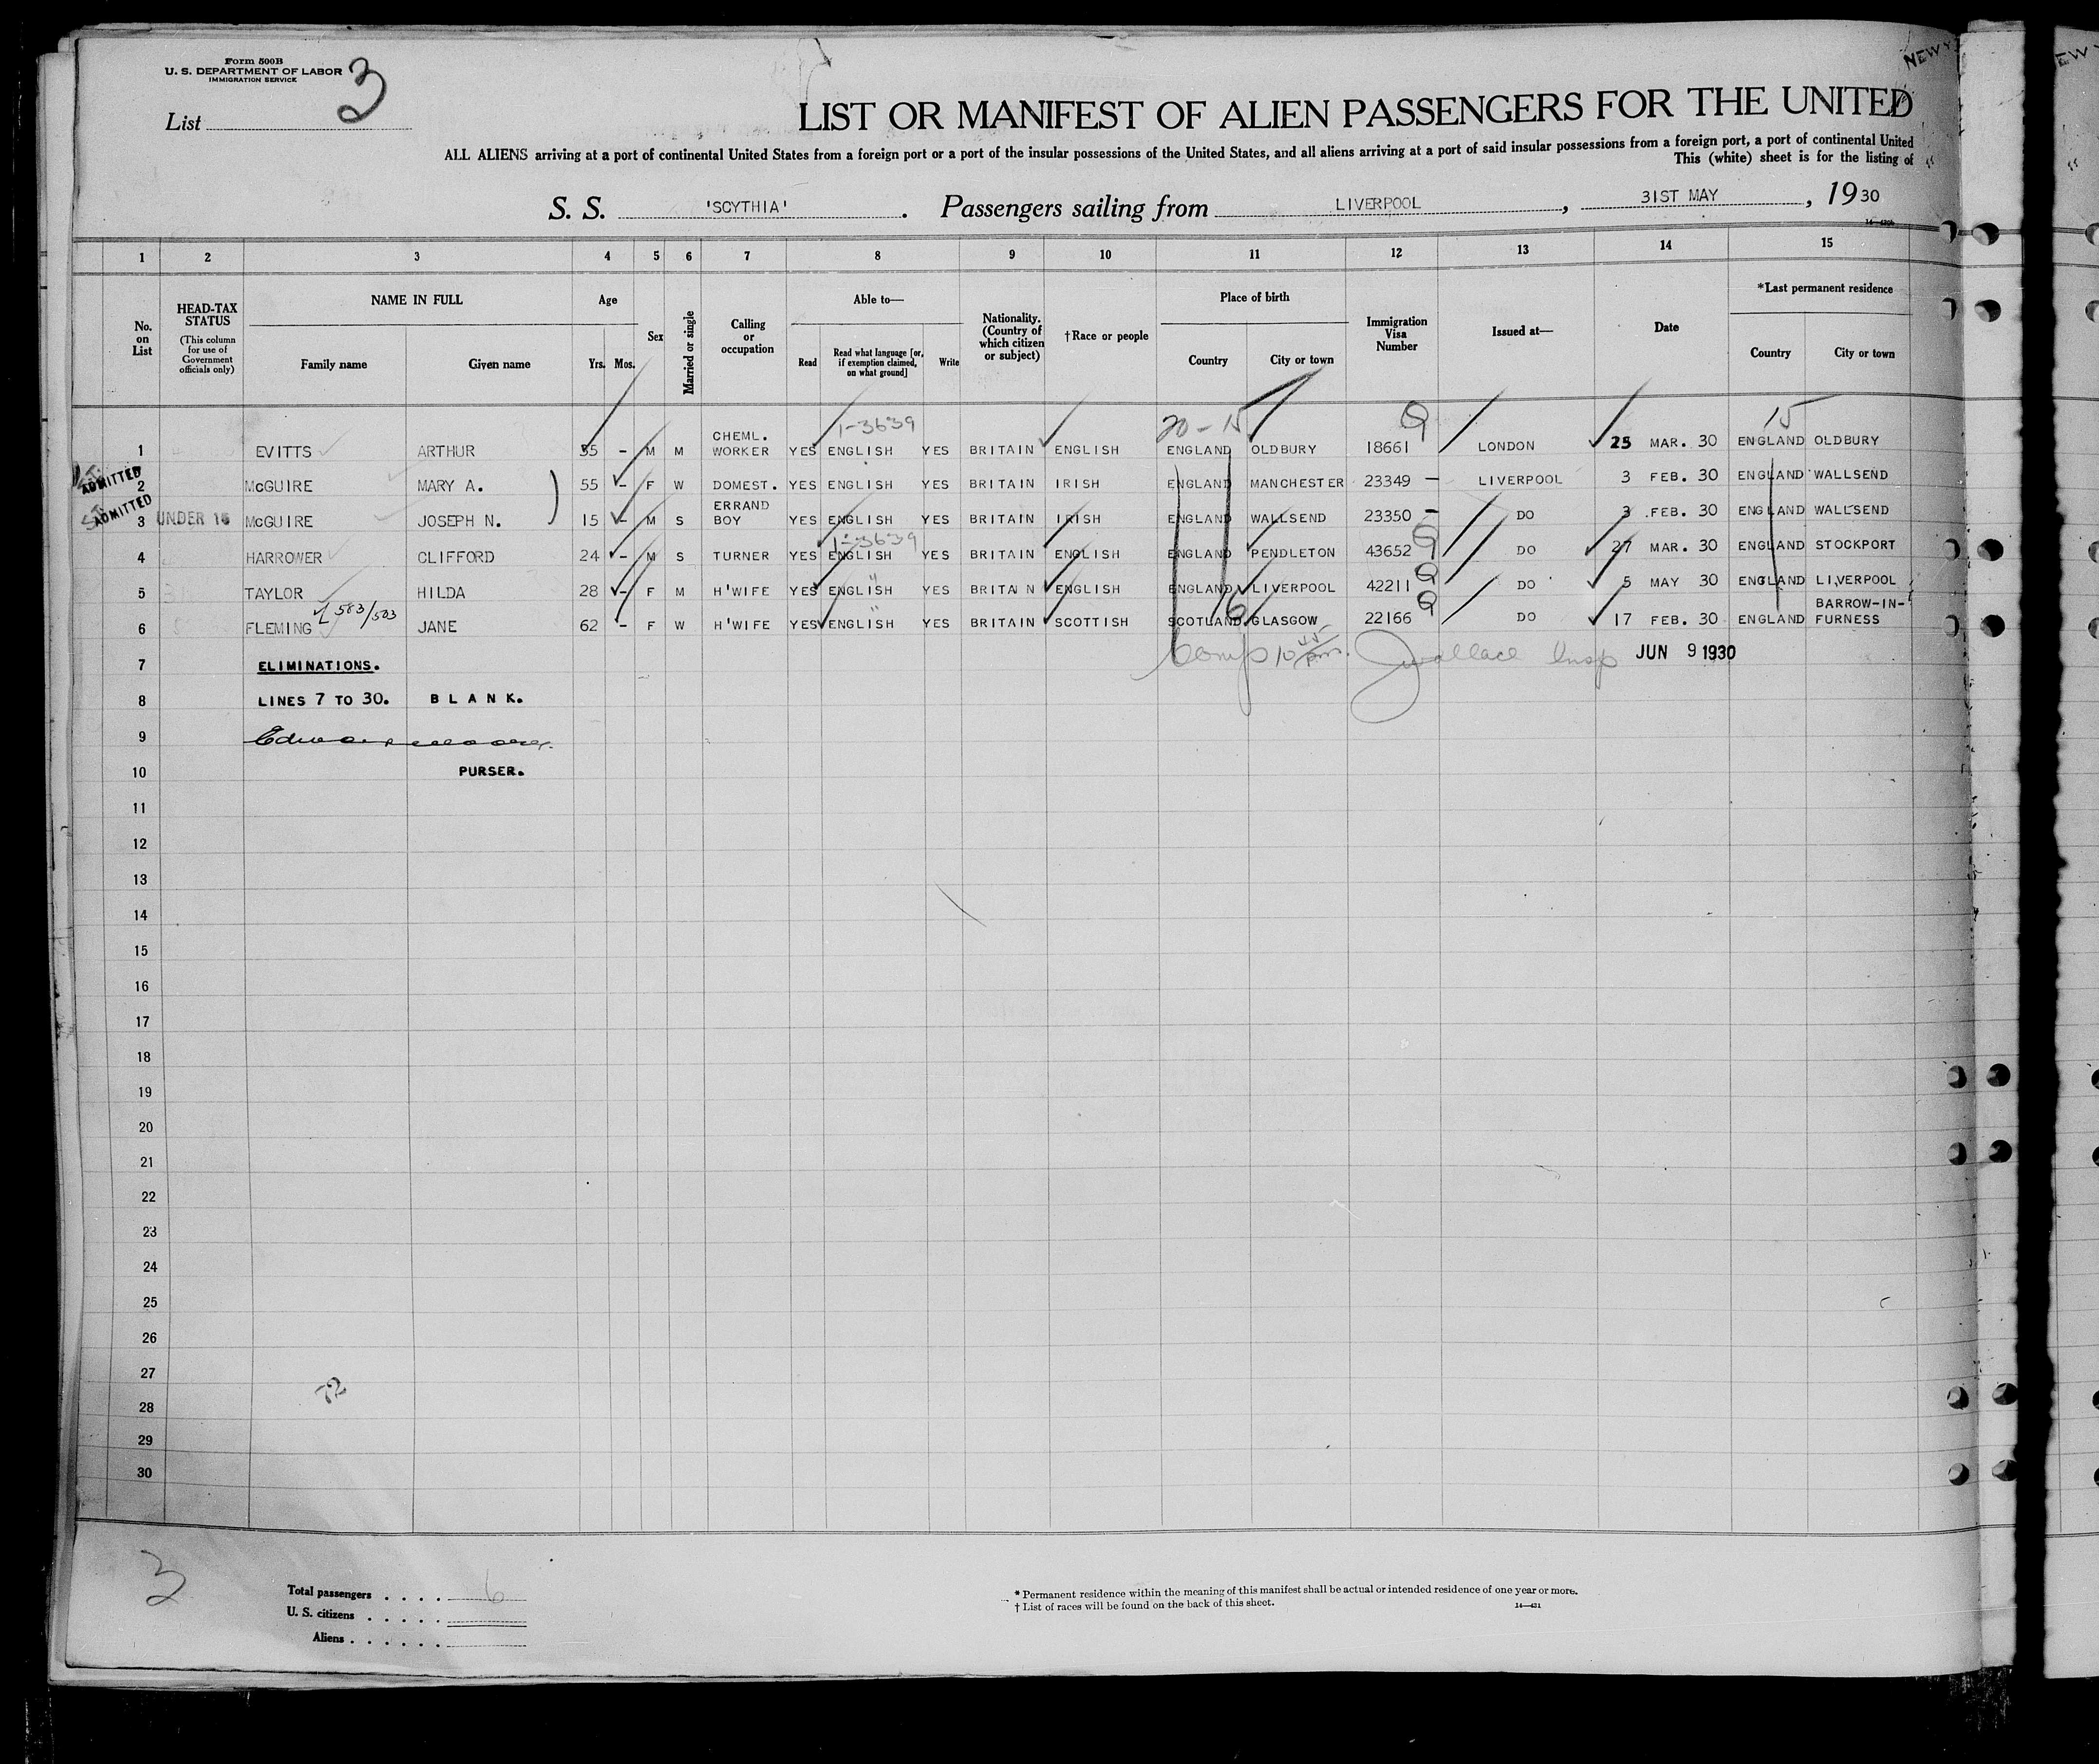 Form 500B
U. S. DEPARTMENT OF LABOR
IMMIGRATION SERVICE
List 3
NEW
LIST OR MANIFEST OF ALIEN PASSENGERS FOR THE UNITED
ALL ALIENS arriving at a port of continental United States from a foreign port or a port of the insular possessions of the United States, and all aliens arriving at a port of said insular possessions from a foreign port, a port of continental United
This (white) sheet is for the listing of
S. S. 'SCYTHIA'. Passengers sailing from LIVERPOOL, 31ST MAY, 1930
1 2 3 4 5 6 7 8 9 10 11 12 13 14 15
No. on List
HEAD-TAX STATUS (This column for use of Government officials only)
NAME IN FULL
Family name Given name
Age
Yrs. Mos.
Sex
Married or single
Calling or occupation
Able to—
Read
Read what language [or, if exemption claimed, on what ground]
Write
Nationality. (Country of which citizen or subject)
†Race or people
Place of birth
Country City or town
Immigration Visa Number
Issued at—
Date
*Last permanent residence
Country City or town
1-3639 20-15 15
1 EVITTS ARTHUR 55 – M M CHEML. WORKER YES ENGLISH YES BRITAIN ENGLISH ENGLAND OLDBURY 18661 LONDON 25 MAR. 30 ENGLAND OLDBURY
ADMITTED 2 McGUIRE MARY A. 55 – F W DOMEST. YES ENGLISH YES BRITAIN IRISH ENGLAND MANCHESTER 23349 – LIVERPOOL 3 FEB. 30 ENGLAND WALLSEND
ADMITTED 3 UNDER 16 McGUIRE JOSEPH N. 15 – M S ERRAND BOY YES ENGLISH YES BRITAIN IRISH ENGLAND WALLSEND 23350 – DO 3 FEB. 30 ENGLAND WALLSEND
1-3639
4 HARROWER CLIFFORD 24 – M S TURNER YES ENGLISH YES BRITAIN ENGLISH ENGLAND PENDLETON 43652 DO 27 MAR. 30 ENGLAND STOCKPORT
5 TAYLOR HILDA 28 – F M H'WIFE YES ENGLISH YES BRITAIN ENGLISH ENGLAND LIVERPOOL 42211 DO 5 MAY 30 ENGLAND LIVERPOOL
583/503
6 FLEMING JANE 62 – F W H'WIFE YES ENGLISH YES BRITAIN SCOTTISH SCOTLAND GLASGOW 22166 DO 17 FEB. 30 ENGLAND BARROW-IN-FURNESS
7 ELIMINATIONS. Comp 10 45 pm. Wallace Insp JUN 9 1930
8 LINES 7 TO 30. BLANK.
9
10 PURSER.
11
12
13
14
15
16
17
18
19
20
21
22
23
24
25
26
27
28
29
30
3
Total passengers . . . . 6
U. S. citizens . . . . .
Aliens . . . . . .
* Permanent residence within the meaning of this manifest shall be actual or intended residence of one year or more.
† List of races will be found on the back of this sheet.
14—431